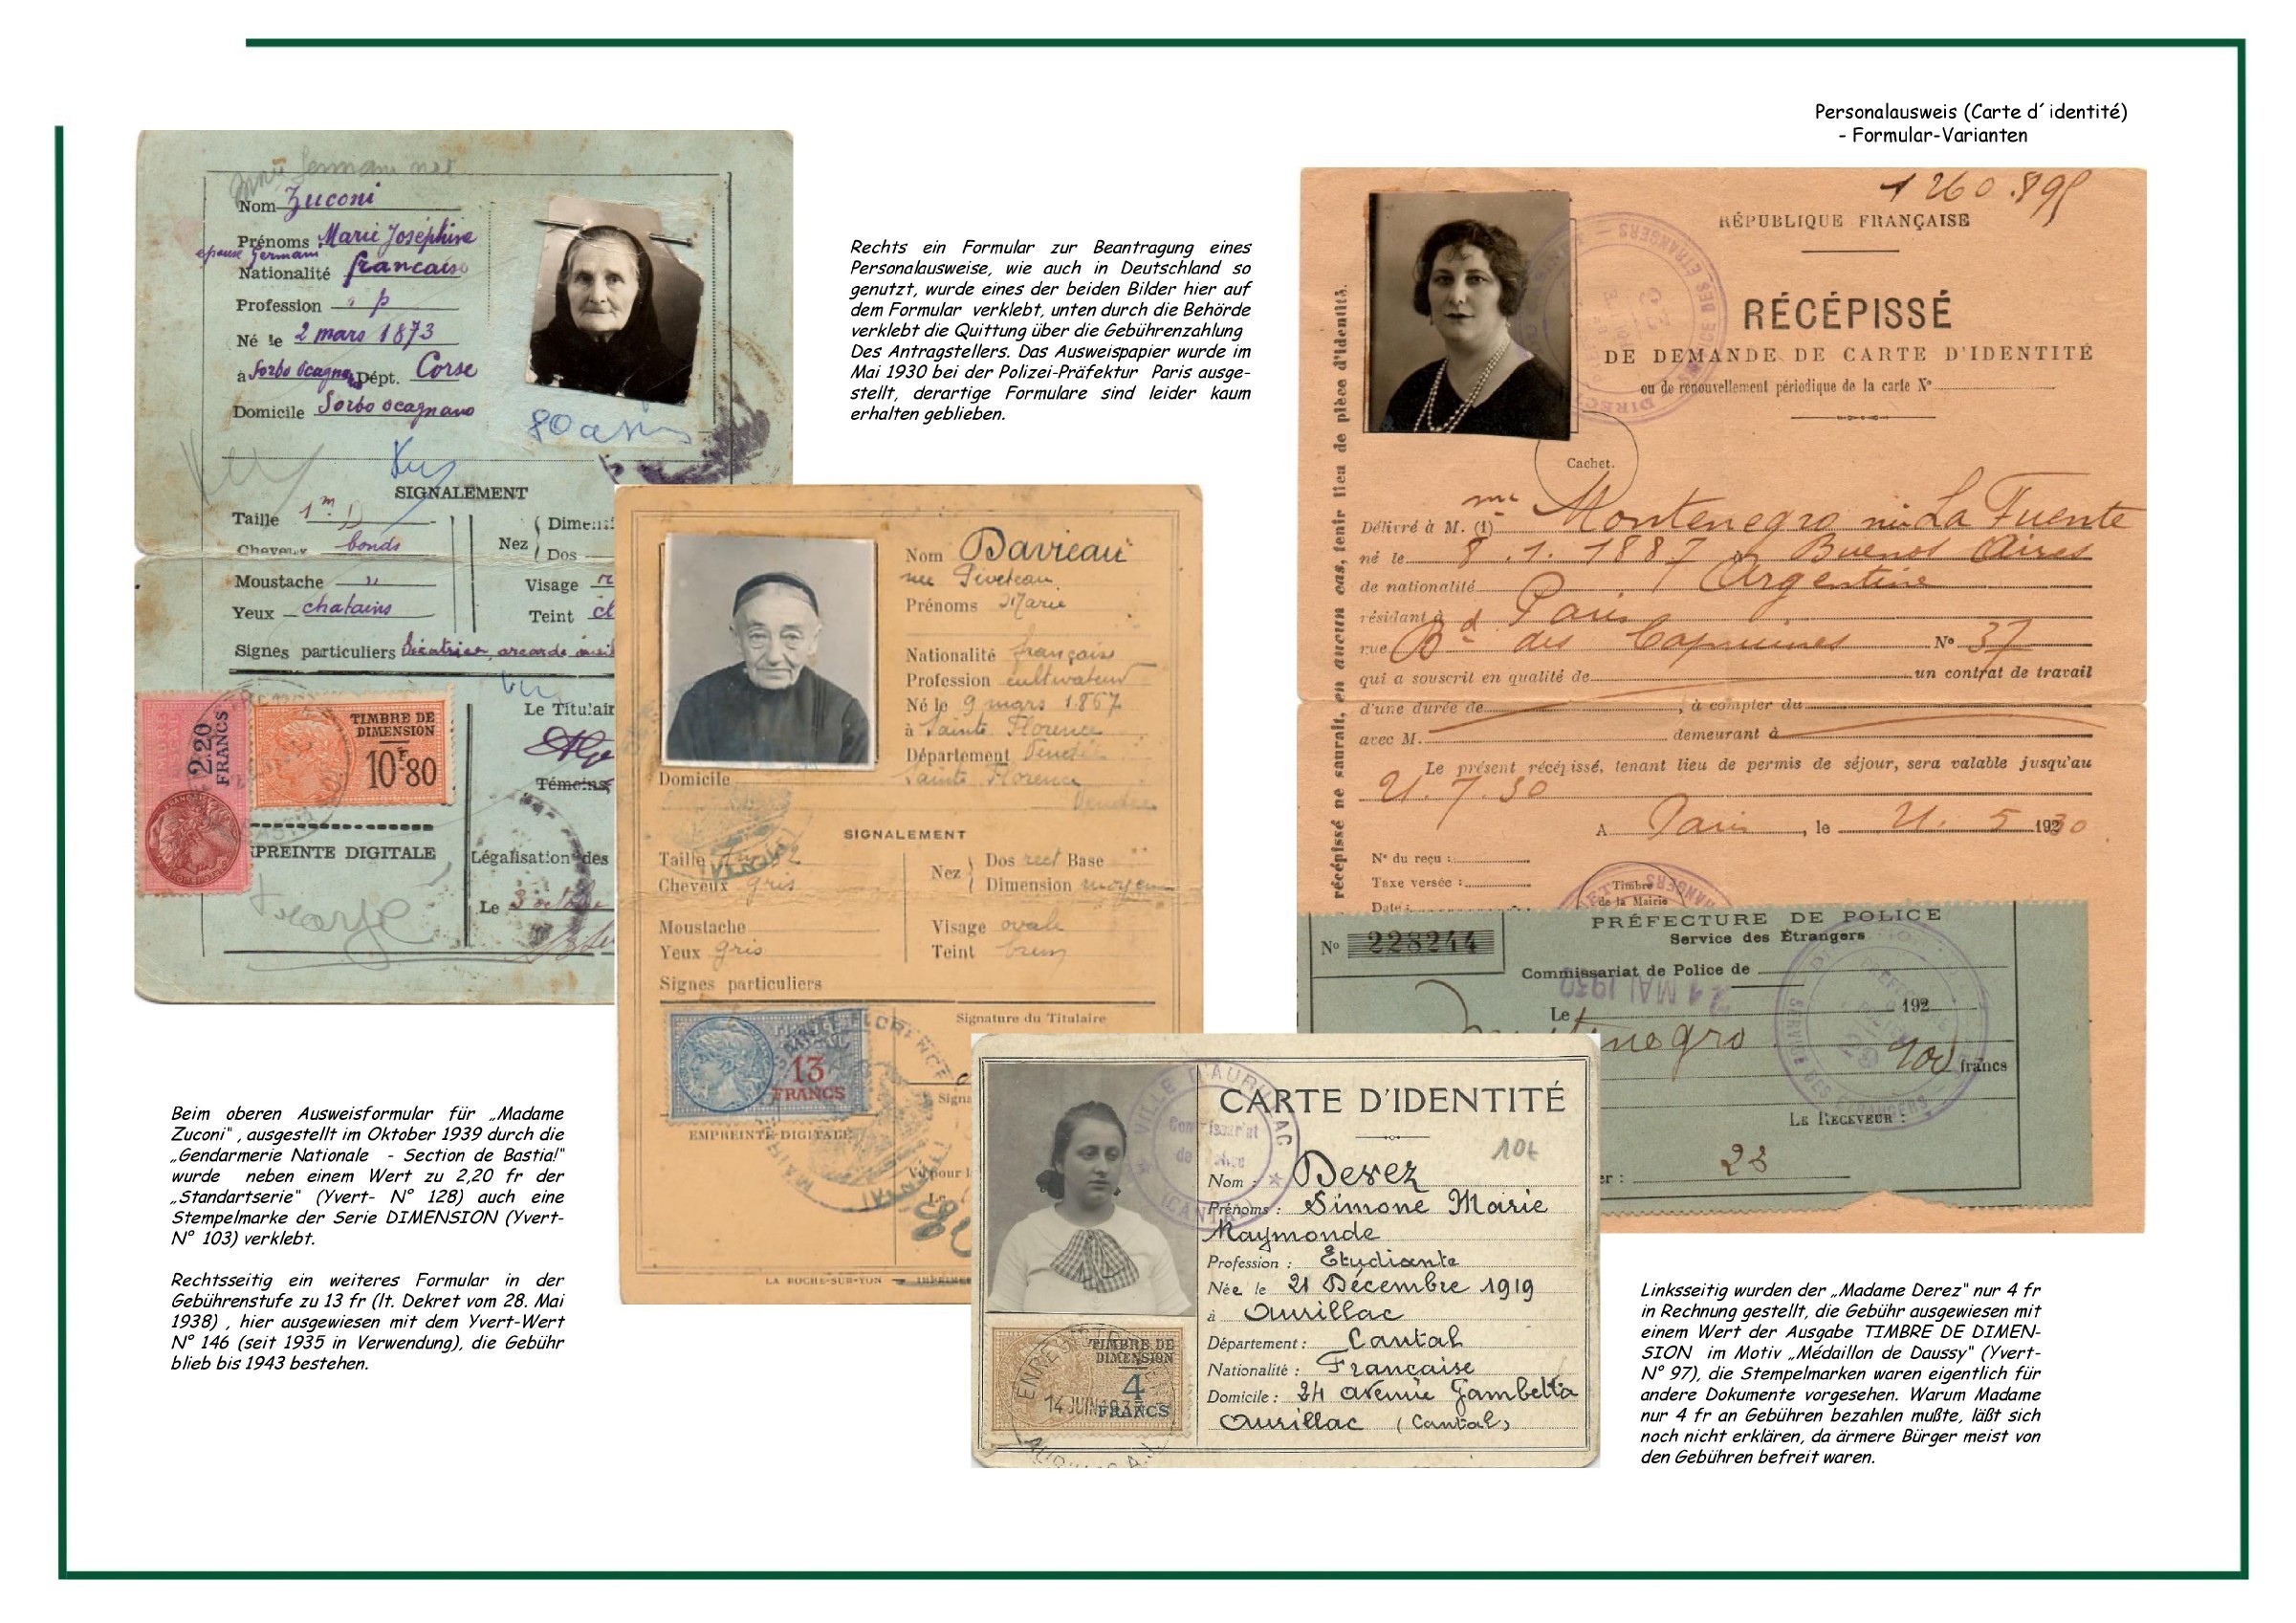 Personalausweis (Carte d´identité)
- Formular-Varianten
Nom Zuconi
Prénoms Marie Joséphine
epouse Germani
Nationalité francaise
Profession
Né le 2 mars 1873
à Sorbo Ocagnano Dépt. Corse
Domicile Sorbo ocagnano
80 ans
SIGNALEMENT
Taille 1m
Cheveux bonds
Moustache "
Yeux chatains
Nez
Dimensi
Dos
Visage
Teint cl
Signes particuliers Cicatrice arcade
2.20
FRANCS
TIMBRE DE
DIMENSION
10F80
Le Titulair
Témoins,
MPREINTE DIGITALE
Légalisation des
Le 3 octobre
Rechts ein Formular zur Beantragung eines
Personalausweise, wie auch in Deutschland so
genutzt, wurde eines der beiden Bilder hier auf
dem Formular verklebt, unten durch die Behörde
verklebt die Quittung über die Gebührenzahlung
Des Antragstellers. Das Ausweispapier wurde im
Mai 1930 bei der Polizei-Präfektur Paris ausge-
stellt, derartige Formulare sind leider kaum
erhalten geblieben.
Nom Davieau
née Piveteau
Prénoms Marie
Nationalité française
Profession cultivateur
Né le 9 mars 1867
à Sainte Florence
Département Vendée
Domicile Sainte Florence
Vendée
SIGNALEMENT
Taille
Cheveux gris
Moustache
Yeux gris
Nez
Dos rect Base
Dimension moyenne
Visage ovale
Teint brun
Signes particuliers
13
FRANCS
Signature du Titulaire
Signa
EMPREINTE DIGITALE
Vu pour l
Le
LA ROCHE-SUR-YON — IMPRIME
1260.895
RÉPUBLIQUE FRANÇAISE
RÉCÉPISSÉ
DE DEMANDE DE CARTE D'IDENTITÉ
ou de renouvellement périodique de la carte N°
récépissé ne saurait, en aucun cas, tenir lieu de pièce d'identité.
Cachet.
Délivré à M. (1) me Montenegro née La Fuente
né le 8.1.1887 à Buenos Aires
de nationalité Argentine
résidant à Paris
rue Bd des Capucines N° 37
qui a souscrit en qualité de un contrat de travail
d'une durée de , à compter du
avec M. demeurant à
Le présent récépissé, tenant lieu de permis de séjour, sera valable jusqu'au
21.7.30
A Paris, le 21.5 1930
N° du reçu :
Taxe versée :
Date :
Timbre
de la Mairie
PRÉFECTURE DE POLICE
Service des Étrangers
N° 228244
Commissariat de Police de
21 MAI 1930
Le 192
Montenegro
100 francs
LE RECEVEUR :
er : 23
VILLE D'AURILLAC
Commissariat
de Police
(CANTAL)
CARTE D'IDENTITÉ
Nom : Derez
Prénoms : Simone Marie
Raymonde
Profession : Étudiante
Née le 21 Décembre 1919
à Aurillac
Département : Cantal
Nationalité : Française
Domicile : 24 avenue Gambetta
Aurillac (Cantal)
TIMBRE DE
DIMENSION
4
FRANCS
Beim oberen Ausweisformular für „Madame
Zuconi" , ausgestellt im Oktober 1939 durch die
„Gendarmerie Nationale - Section de Bastia!"
wurde neben einem Wert zu 2,20 fr der
„Standartserie" (Yvert- N° 128) auch eine
Stempelmarke der Serie DIMENSION (Yvert-
N° 103) verklebt.
Rechtsseitig ein weiteres Formular in der
Gebührenstufe zu 13 fr (lt. Dekret vom 28. Mai
1938) , hier ausgewiesen mit dem Yvert-Wert
N° 146 (seit 1935 in Verwendung), die Gebühr
blieb bis 1943 bestehen.
Linksseitig wurden der „Madame Derez" nur 4 fr
in Rechnung gestellt, die Gebühr ausgewiesen mit
einem Wert der Ausgabe TIMBRE DE DIMEN-
SION im Motiv „Médaillon de Daussy" (Yvert-
N° 97), die Stempelmarken waren eigentlich für
andere Dokumente vorgesehen. Warum Madame
nur 4 fr an Gebühren bezahlen mußte, läßt sich
noch nicht erklären, da ärmere Bürger meist von
den Gebühren befreit waren.